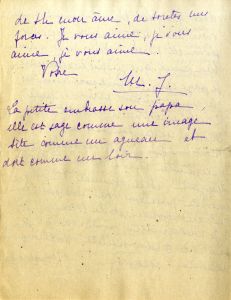 de tte mon âme, de toutes mes
forces. Je vous aime, je vous
aime je vous aime.
Votre
M. J.
La petite embrasse son papa,
elle est sage comme une image
bête comme un agneau et
dort comme un loir.